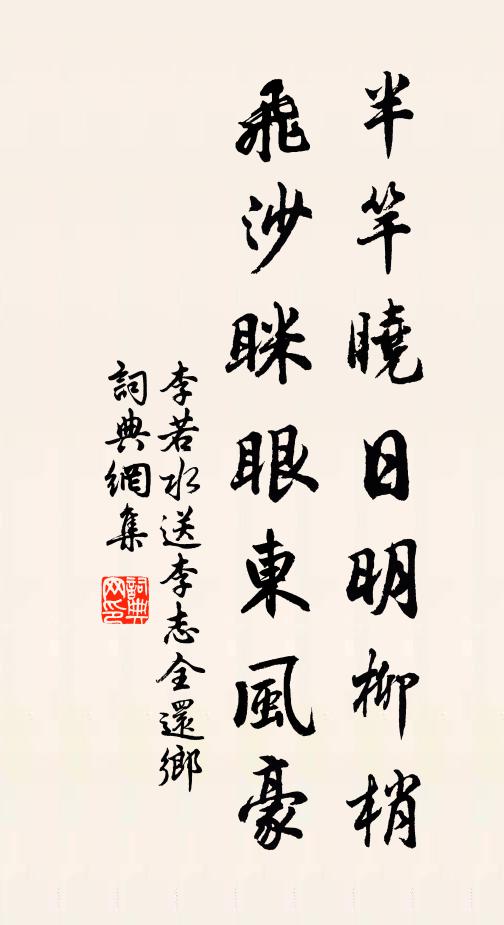 半竿曉日明柳梢
飛沙眯眼東風豪
李若水送李志全還鄉
詞典網集
詞典網印